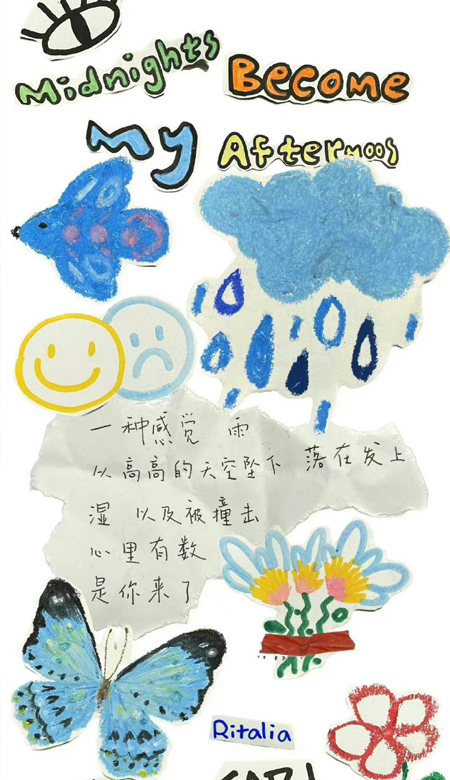 Midnights Become
My Afternoos
一种感觉 雨
以高高的天空坠下 落在发上
湿 以及被撞击
心里有数
是你来了
Ritalia